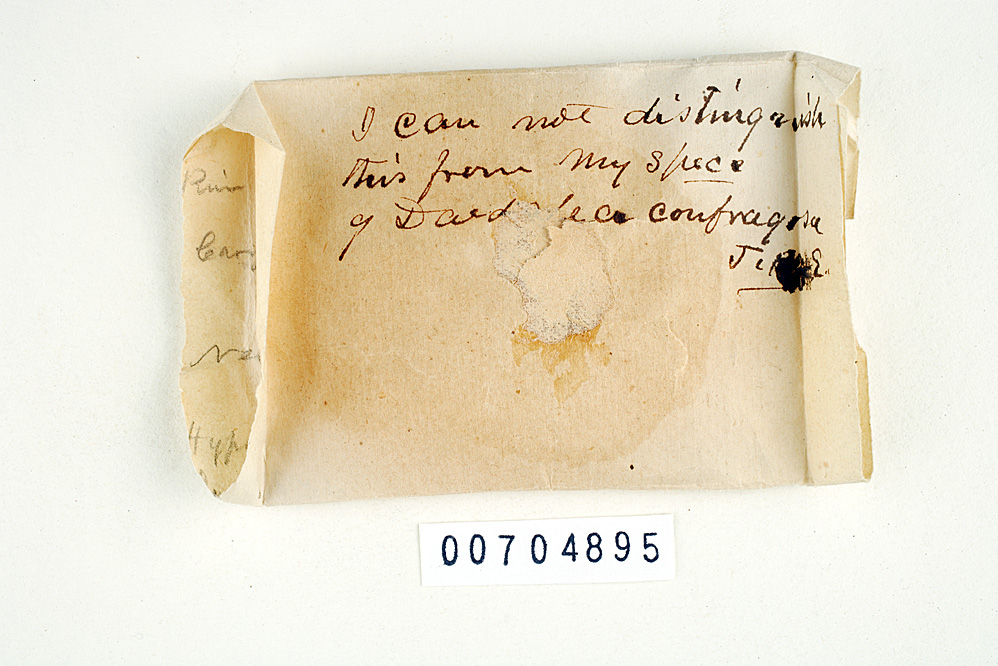 I can not distinguish
this from my spece
of Daedalea confragosa
Hyp
00704895